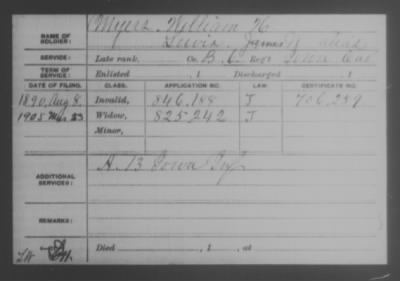 Myers, William H.
NAME OF SOLDIER:
Lewis, James W. alias
SERVICE: Late rank, Co. B, 6 Reg't Iowa Cav
TERM OF SERVICE: Enlisted , 1 Discharged , 1
DATE OF FILING. CLASS. APPLICATION NO. LAW CERTIFICATE NO.
1890, Aug 8, Invalid, 846,188 J 756,259
1905 23 Widow, 825242 J
Minor,
ADDITIONAL SERVICES: A. 13 Iowa Inf
REMARKS:
Died , 1 , at